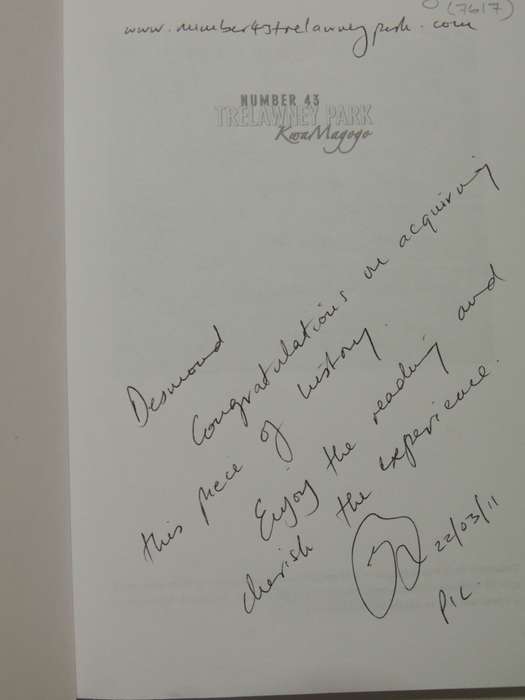 (7617)
www.number43trelawneypark.com
NUMBER 43
TRELAWNEY PARK
KwaMagogo
Desmond
Congratulations on acquiring
this piece of history.
Enjoy the reading and
cherish the experience.
22/03/11